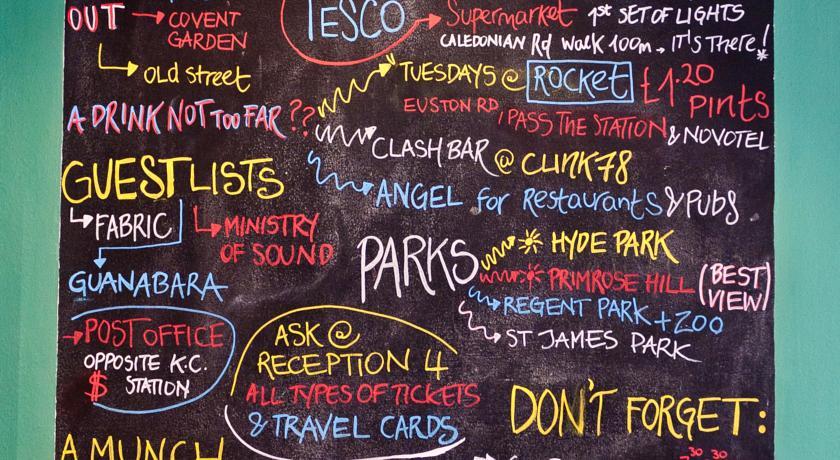 OUT → COVENT
GARDEN
OLD STREET
TESCO → SUPERMARKET 1ST SET OF LIGHTS
CALEDONIAN Rd WALK 100m → IT'S THERE!*
A DRINK NOT TOO FAR ??
TUESDAYS @ ROCKET £1.20
PINTS
EUSTON RD / PASS THE STATION
& NOVOTEL
CLASH BAR @ CLINK78
ANGEL for Restaurants & Pubs
GUEST LISTS
FABRIC
MINISTRY
OF SOUND
GUANABARA
PARKS
HYDE PARK
PRIMROSE HILL (BEST
VIEW)
REGENT PARK + ZOO
ST JAMES PARK
→ POST OFFICE
OPPOSITE K.C.
$ STATION
ASK @
RECEPTION 4
ALL TYPES OF TICKETS
& TRAVEL CARDS
DON'T FORGET:
A MUNCH
30 30